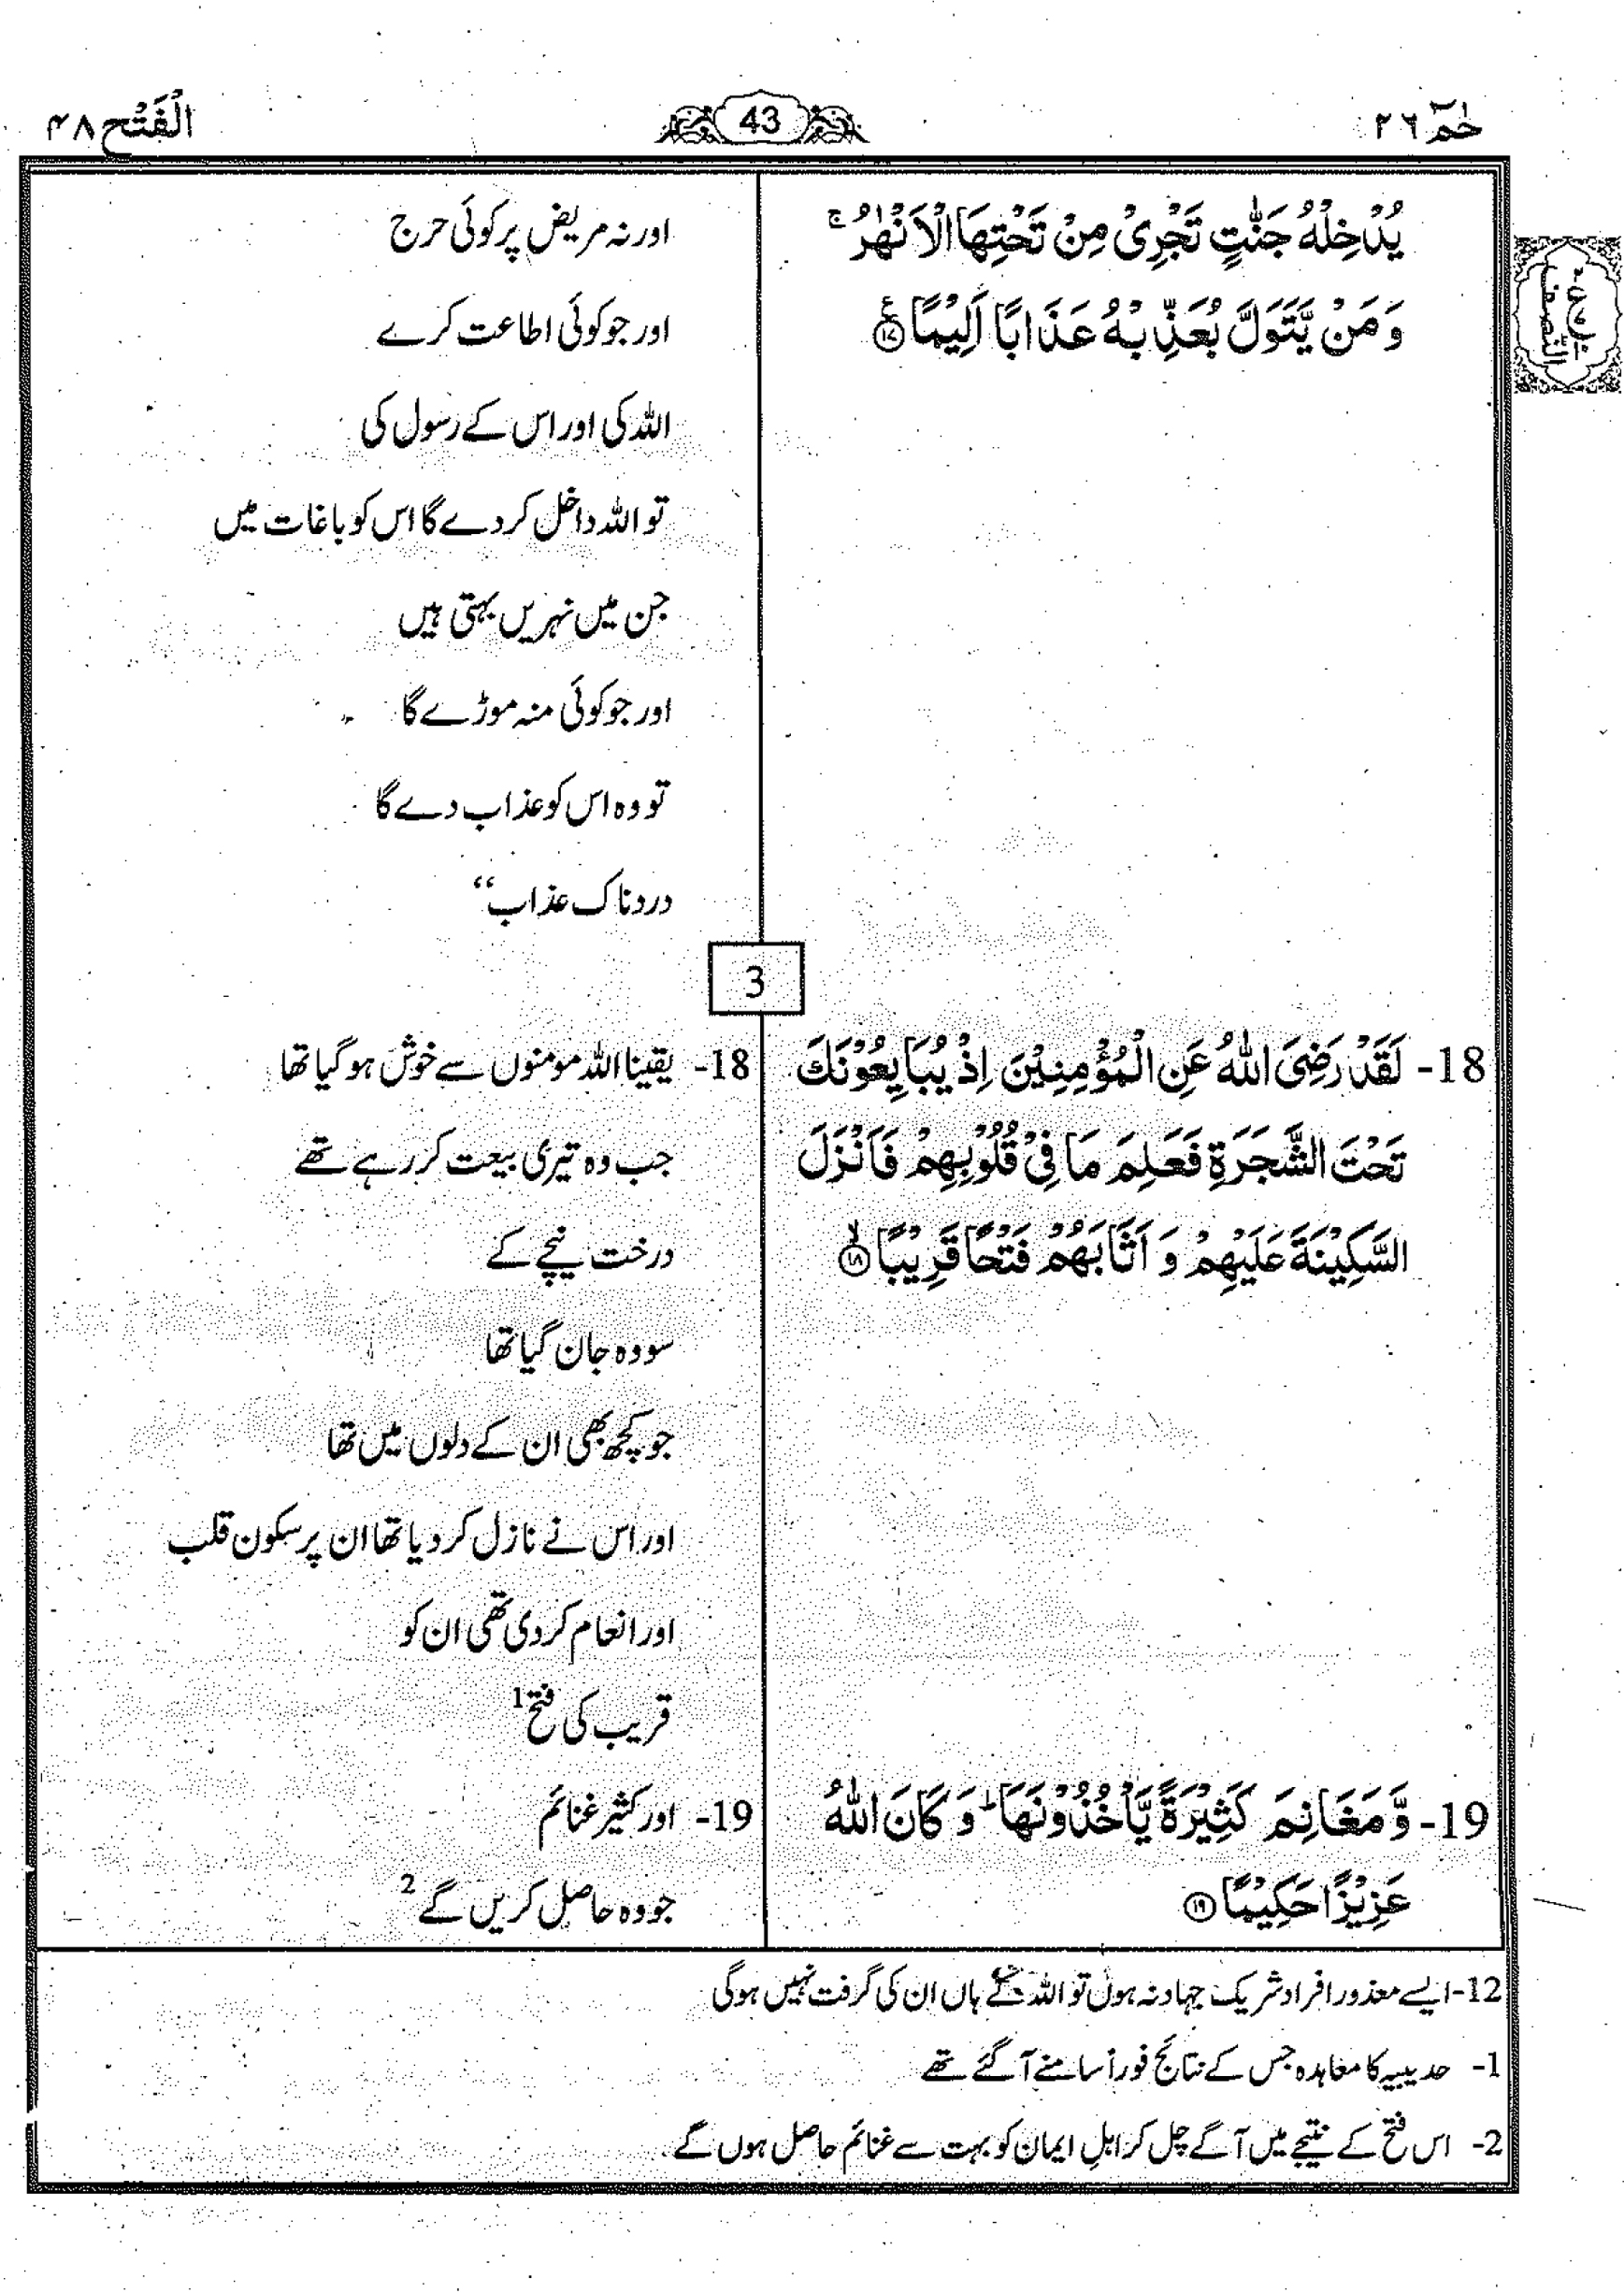 حٰمٓ ٢٦
43
الْفَتْح ٤٨
يُدْخِلْهُ جَنّٰتٍ تَجْرِىْ مِنْ تَحْتِهَا الْاَنْهٰرُ ۚ
وَ مَنْ يَّتَوَلَّ يُعَذِّبْهُ عَذَابًا اَلِيْمًا ﴿١٧﴾
النّصف
اور نہ مریض پر کوئی حرج
اور جو کوئی اطاعت کرے
اللہ کی اور اس کے رسول کی
تو اللہ داخل کر دے گا اس کو باغات میں
جن میں نہریں بہتی ہیں
اور جو کوئی منہ موڑے گا
تو وہ اس کو عذاب دے گا
دردناک عذاب“
3
18- لَقَدْ رَضِىَ اللّٰهُ عَنِ الْمُؤْمِنِيْنَ اِذْ يُبَايِعُوْنَكَ
تَحْتَ الشَّجَرَةِ فَعَلِمَ مَا فِىْ قُلُوْبِهِمْ فَاَنْزَلَ
السَّكِيْنَةَ عَلَيْهِمْ وَ اَثَابَهُمْ فَتْحًا قَرِيْبًا ۙ﴿١٨﴾
18- یقینا اللہ مومنوں سے خوش ہو گیا تھا
جب وہ تیری بیعت کر رہے تھے
درخت نیچے کے
سو وہ جان گیا تھا
جو کچھ بھی ان کے دلوں میں تھا
اور اس نے نازل کر دیا تھا ان پر سکون قلب
اور انعام کر دی تھی ان کو
قریب کی فتح1
19- وَّ مَغَانِمَ كَثِيْرَةً يَّاْخُذُوْنَهَا ؕ وَ كَانَ اللّٰهُ
عَزِيْزًا حَكِيْمًا ﴿١٩﴾
19- اور کثیر غنائم
جو وہ حاصل کریں گے2
12- ایسے معذور افراد شریک جہاد نہ ہوں تو اللہ کے ہاں ان کی گرفت نہیں ہوگی
1- حدیبیہ کا معاہدہ جس کے نتائج فوراً سامنے آگئے تھے
2- اس فتح کے نتیجے میں آگے چل کر اہلِ ایمان کو بہت سے غنائم حاصل ہوں گے